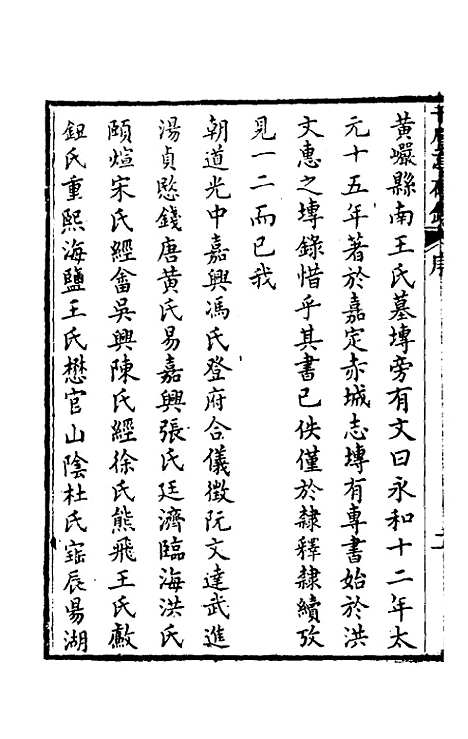 黃巖縣南王氏墓塼旁有文曰永和十二年太
元十五年著於嘉定赤城志塼有專書始於洪
文惠之塼錄惜乎其書已佚僅於隸釋隸續攷
見一二而已我
朝道光中嘉興馮氏登府合儀徵阮文達武進
湯貞愍錢唐黃氏易嘉興張氏廷濟臨海洪氏
頤煊宋氏經畬吳興陳氏經徐氏熊飛王氏獻
鈕氏重熙海鹽王氏懋官山陰杜氏寶辰昜湖